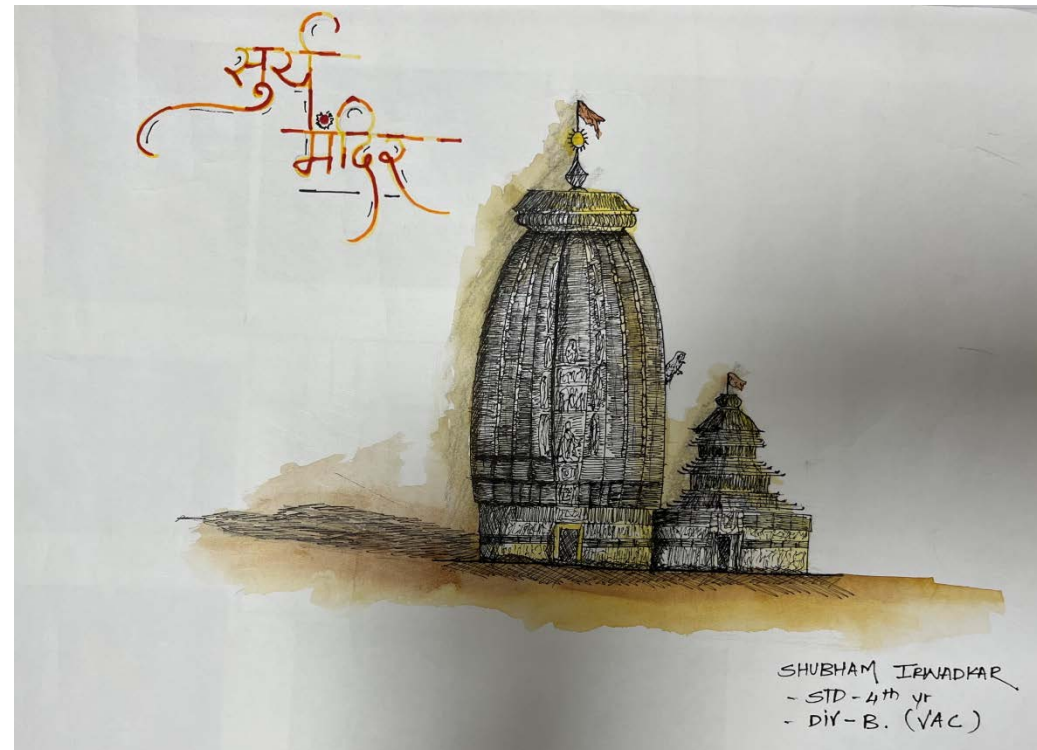 सुर्य
मंदिर
SHUBHAM IRWADKAR
- STD - 4th yr
- DIV - B. (VAC)